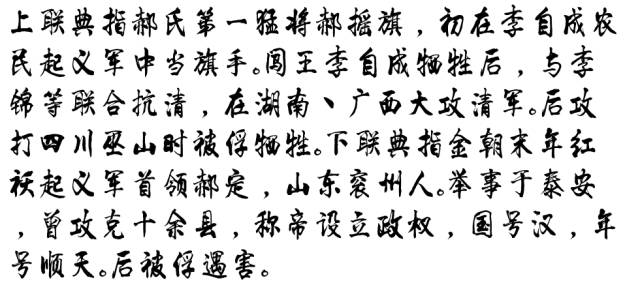 上联典指郝氏第一猛将郝摇旗，初在李自成农
民起义军中当旗手。闯王李自成牺牲后，与李
锦等联合抗清，在湖南、广西大攻清军。后攻
打四川巫山时被俘牺牲。下联典指金朝末年红
袄起义军首领郝定，山东衮州人。举事于泰安
，曾攻克十余县，称帝设立政权，国号汉，年
号顺天。后被俘遇害。